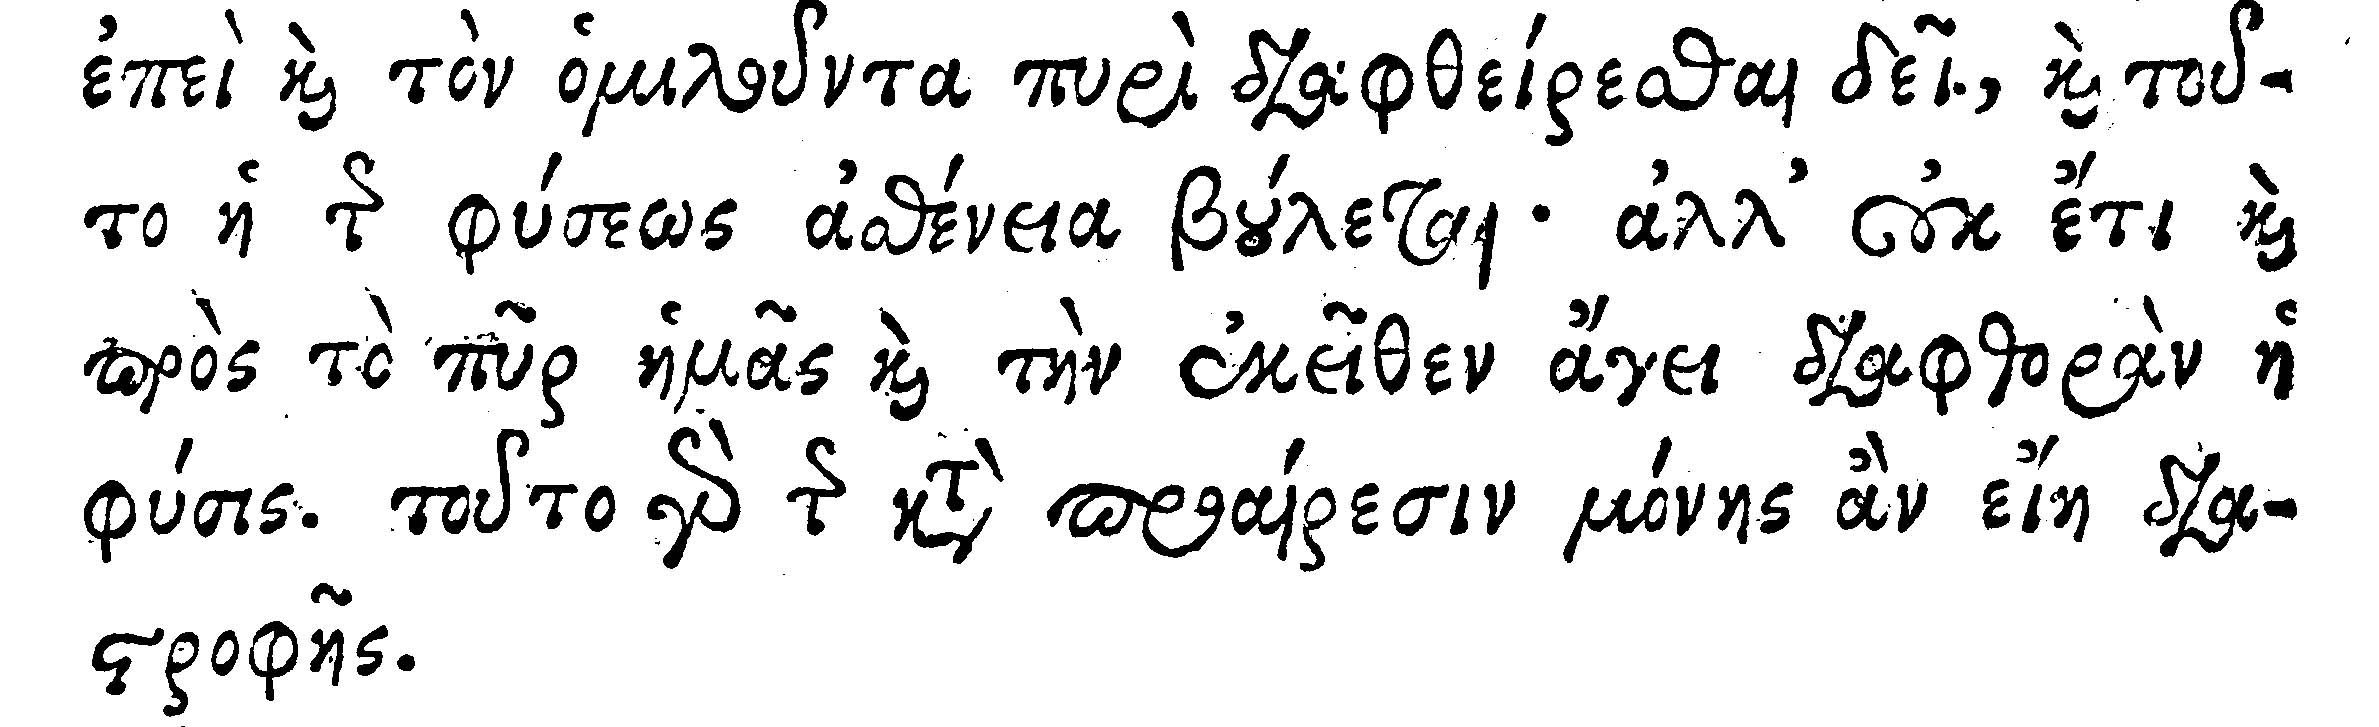 ἐπεὶ καὶ τὸν ὁμιλοῦντα πυρὶ διαφθείρεσθαι δεῖ, καὶ τοῦ-
το ἡ τῆς φύσεως ἀσθένεια βούλεται· ἀλλ' οὐκ ἔτι καὶ
πρὸς τὸ πῦρ ἡμᾶς καὶ τὴν ἐκεῖθεν ἄγει διαφθορὰν ἡ
φύσις. τοῦτο γὰρ τῆς κατὰ προαίρεσιν μόνης ἂν εἴη δια-
στροφῆς.